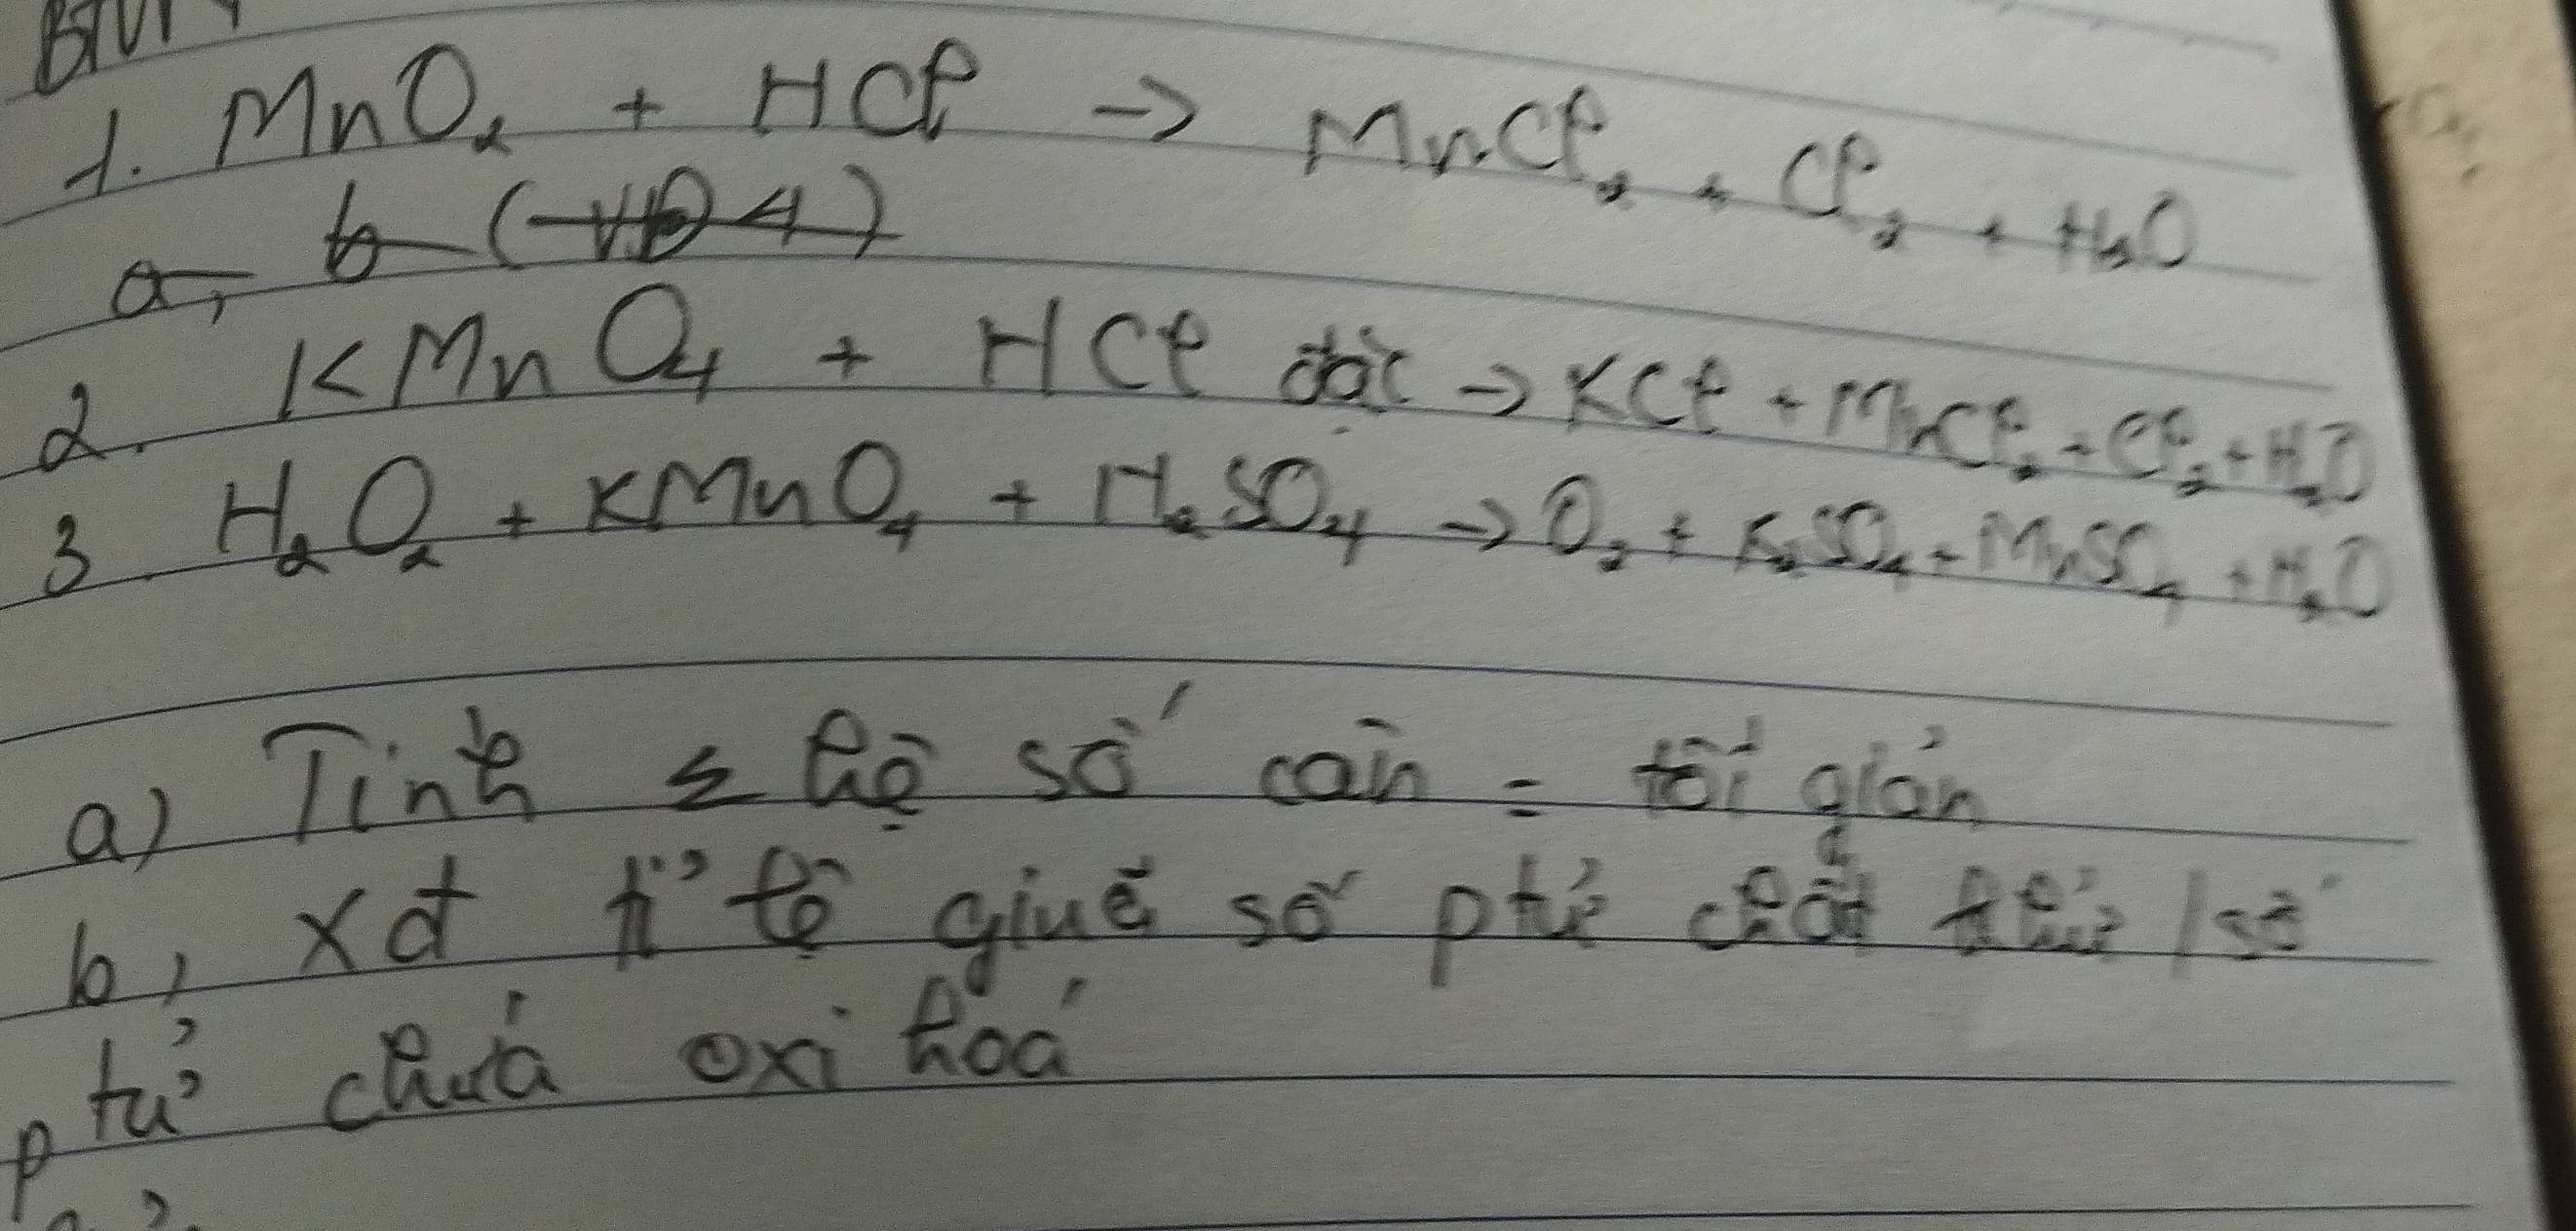 BTVN
1. MnO₂ + HCl → MnCl₂ + Cl₂ + H₂O
a,
2. KMnO₄ + HCl đặc → KCl + MnCl₂ + Cl₂ + H₂O
3. H₂O₂ + KMnO₄ + H₂SO₄ → O₂ + K₂SO₄ + MnSO₄ + H₂O
a) Tính Σ hệ số cân = tối giản
b, xđ tỉ lệ giuê số ptử chất khử / số
ptử chưá oxi hoá